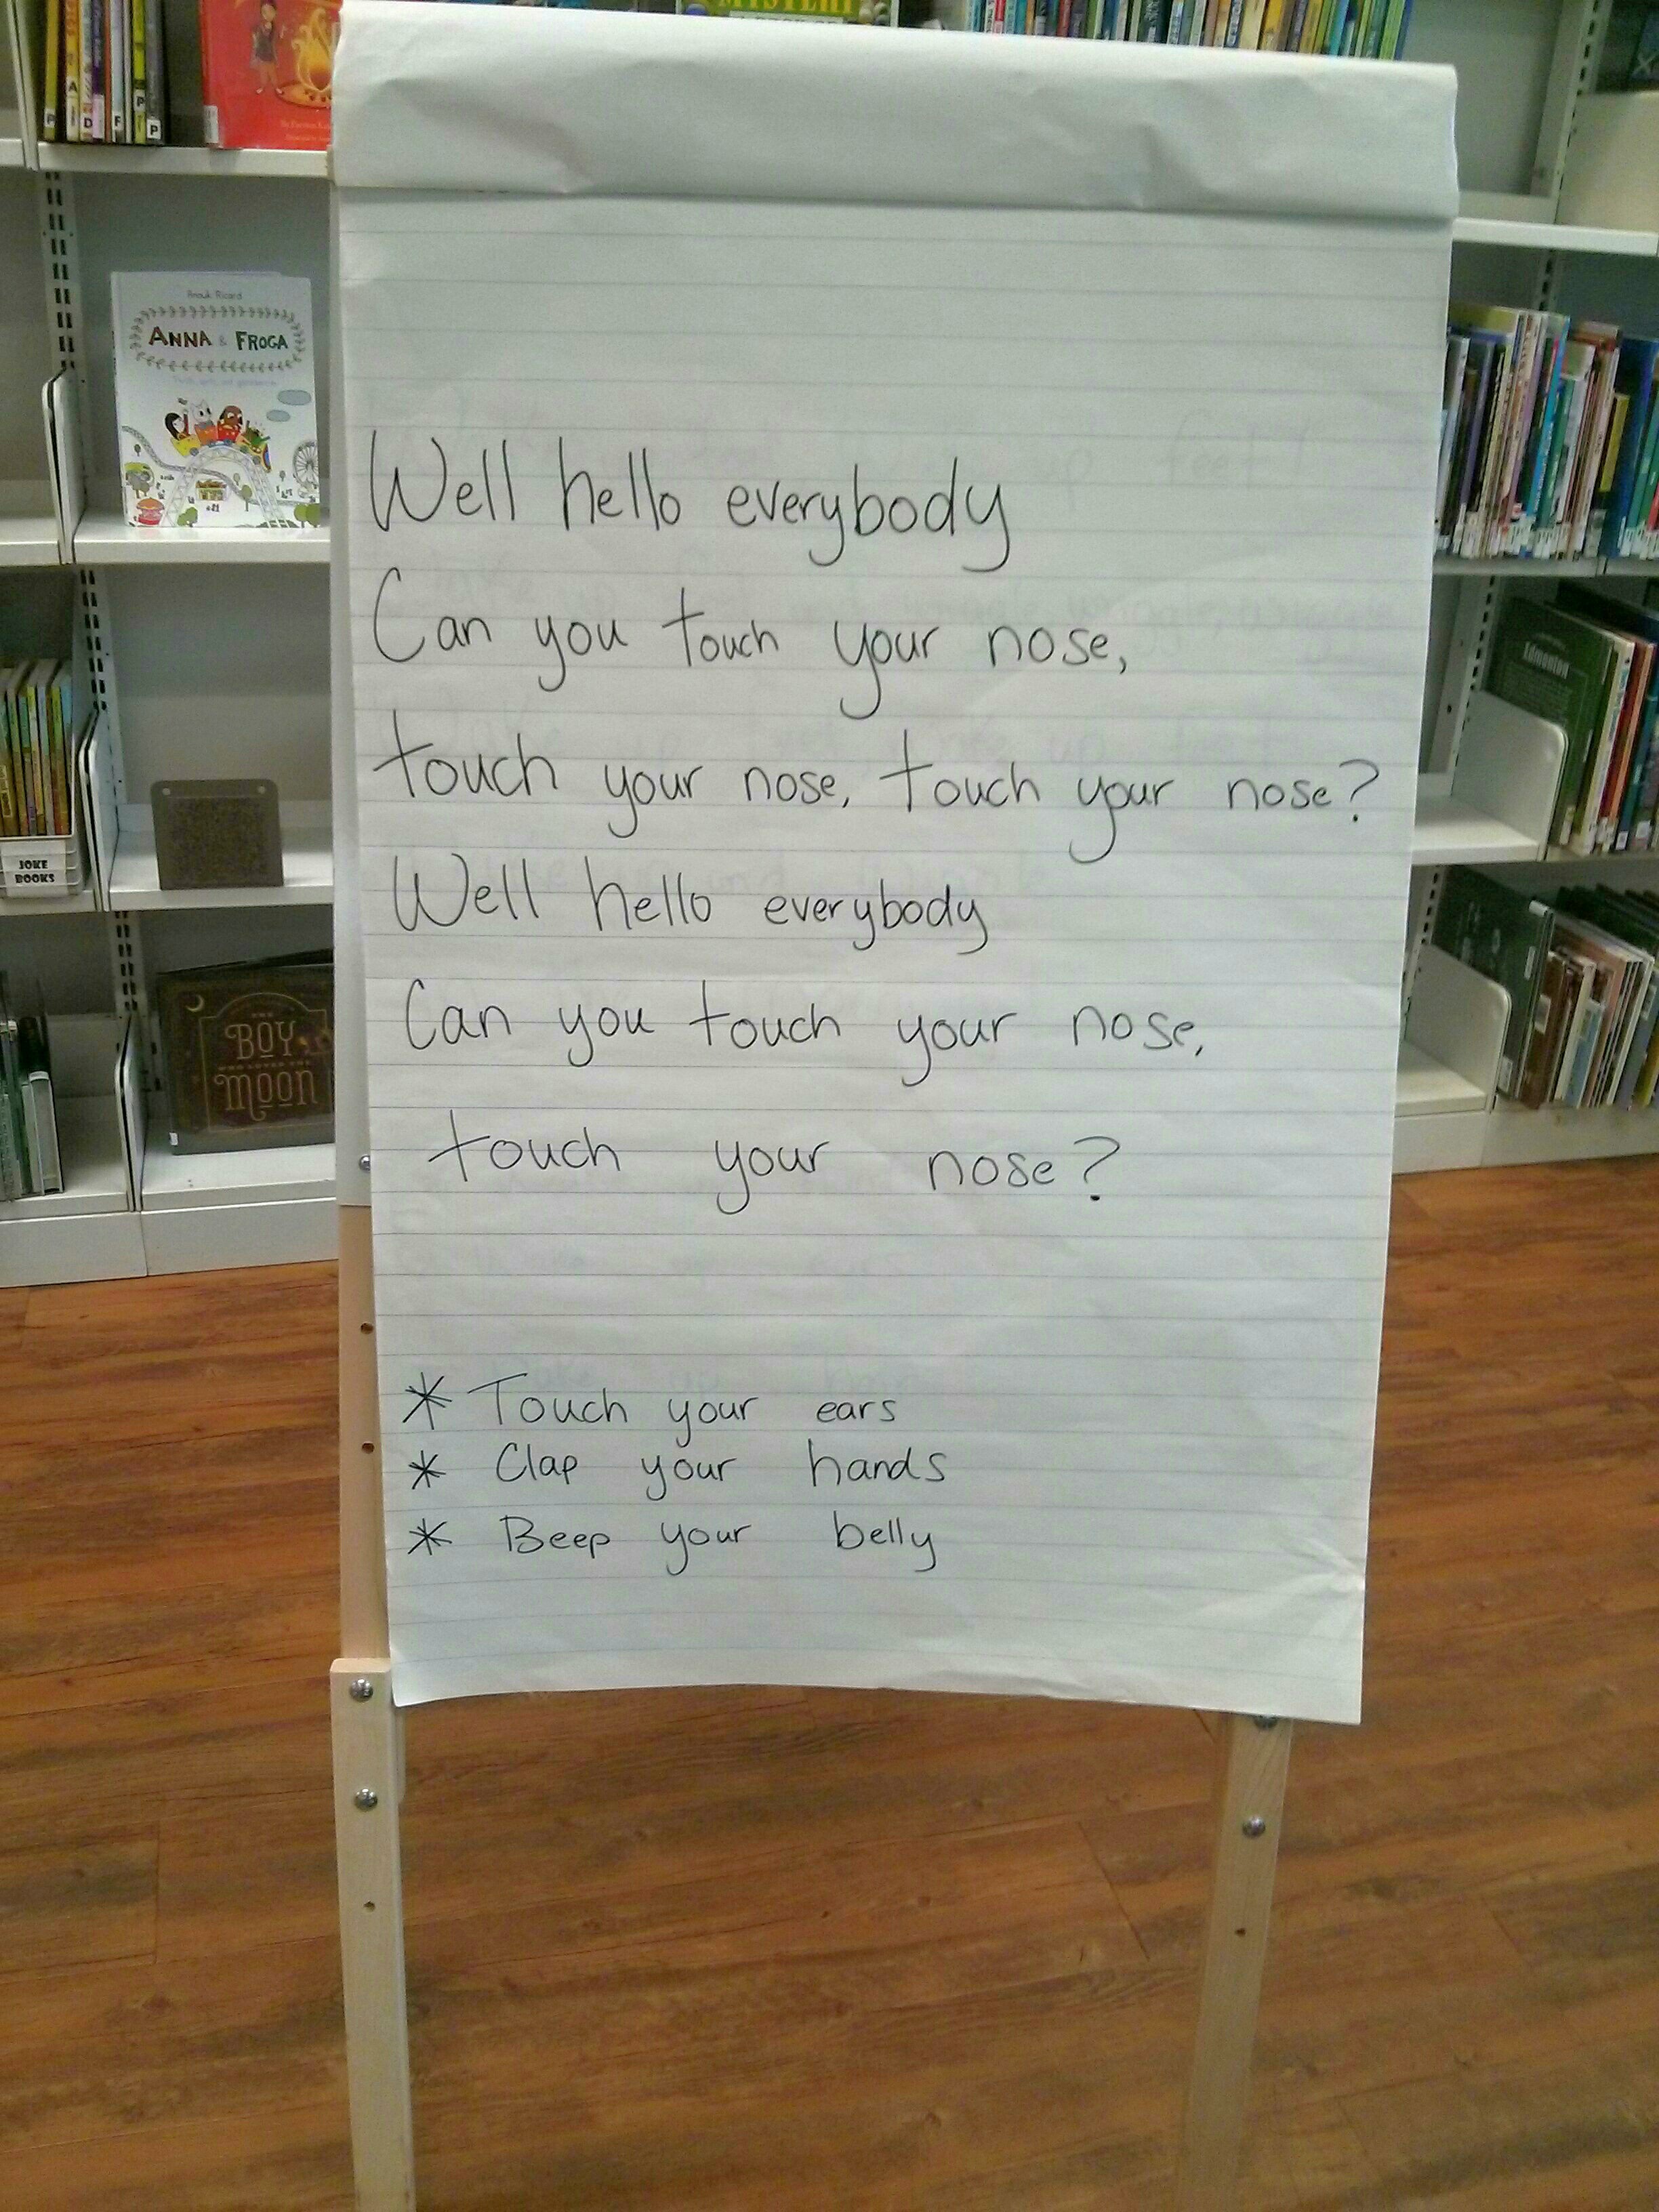 MYSTERY
A
P
D
F
P
P
Anouk Ricard
ANNA & FROGA
Well hello everybody
Can you touch your nose,
touch your nose, touch your nose?
Well hello everybody
Can you touch your nose,
touch your nose?
* Touch your ears
* Clap your hands
* Beep your belly
JOKE
BOOKS
THE
BOY
WHO LOVED THE
MOON
Edmonton